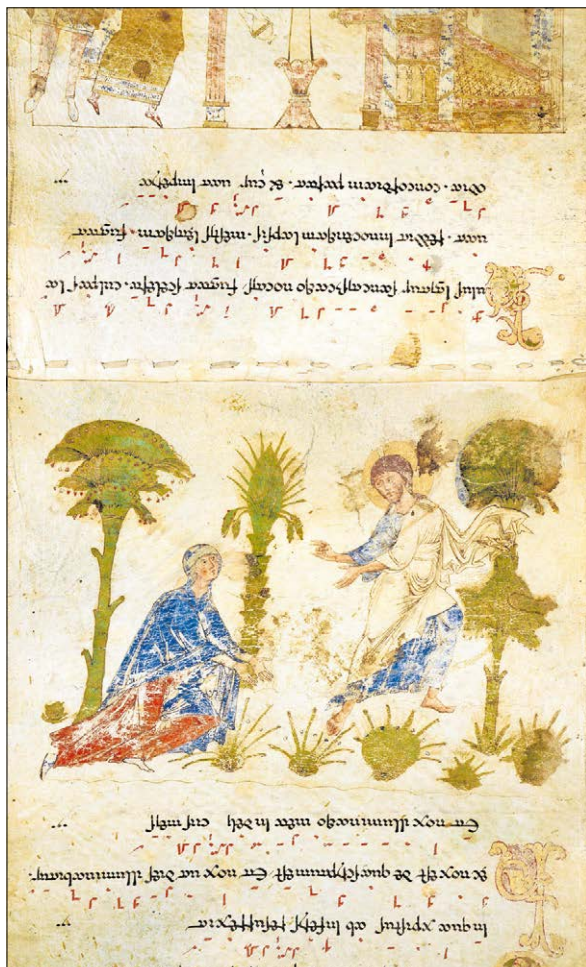 In qua xpistus ab inferis resurrexit
Hec nox est de qua scriptum est Et nox ut dies illuminabitur.
Et nox illuminatio mea in deli ciis meis
Huius Igitur sanctificatio noctis fugat scelera. culpas la
uat. reddit Innocentiam lapsis. mestis letitiam. fugat
odia. concordiam parat. & curuat Imperia